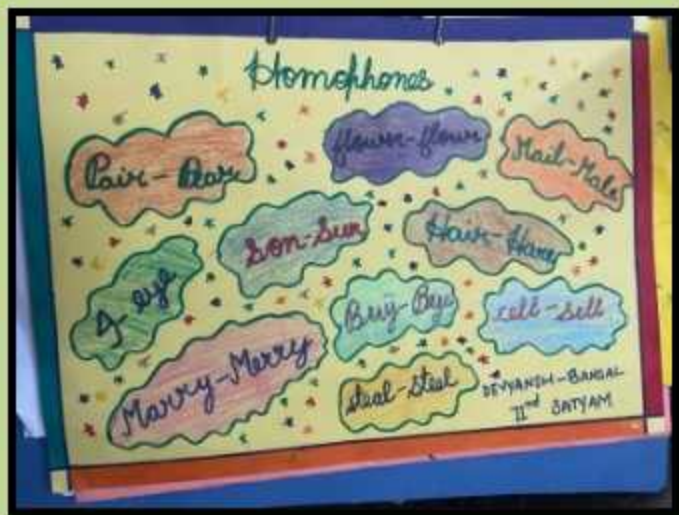 Homophones
Pair - Pear
flower - flour
Mail - Male
Son - Sun
Hair - Hare
I - eye
Buy - Bye
cell - sell
Marry - Merry
steal - steel
DEVYANSH - BANSAL
IInd SATYAM